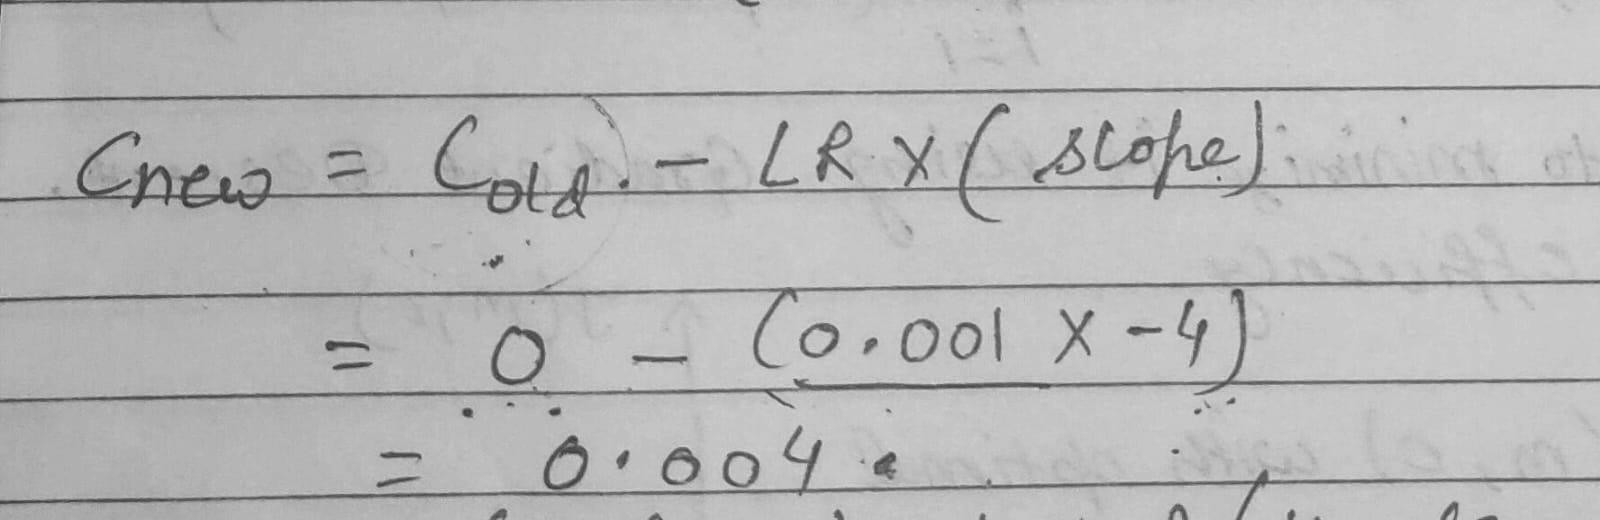 Cnew = Cold. - LR X (slope)
= 0 - (0.001 X -4)
= 0.004